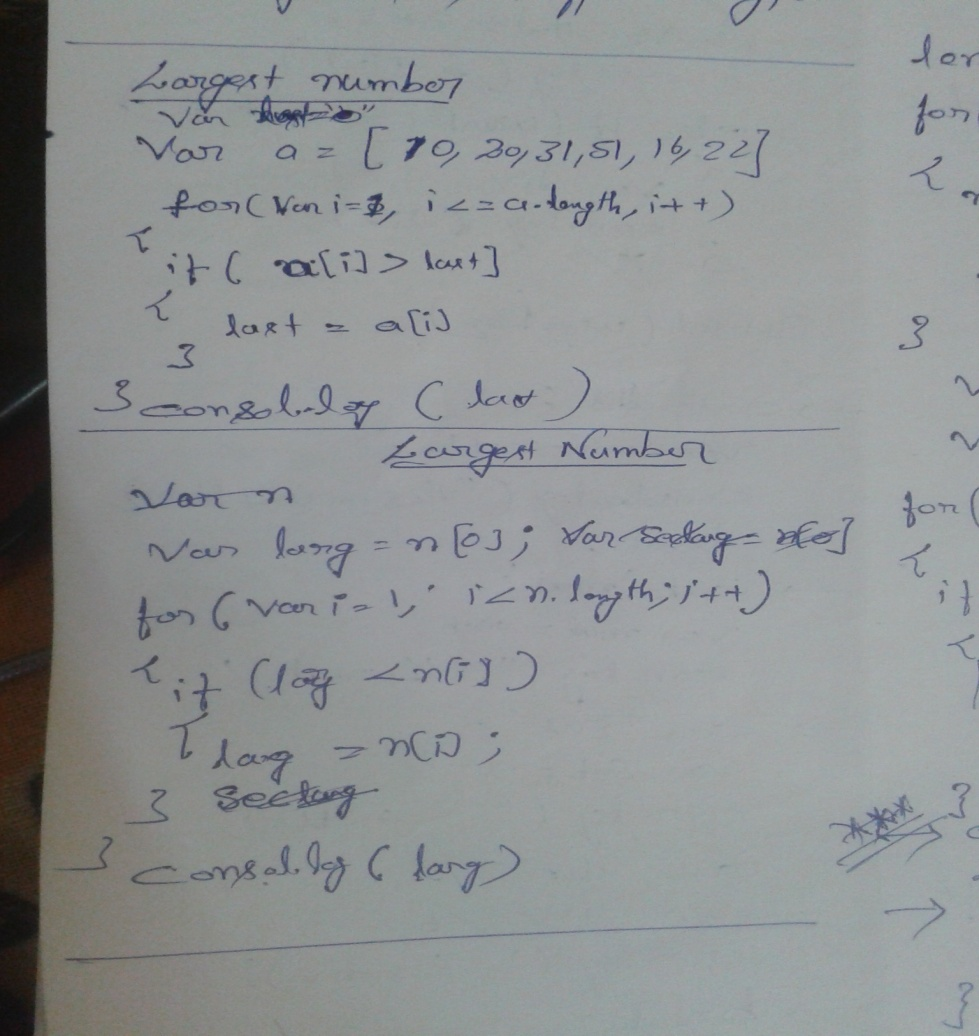 Largest number
Var
Var a = [ 10, 20, 31, 51, 16, 22]
for( Var i=1, i <= a.length, i++)
{
if ( a[i] > last]
{
last = a[i]
}
} consol.log ( last )
Largest Number
Var n
Var larg = n[0]; Var seclarg = n[0]
for ( Var i=1; i<n.length; i++)
{ if (larg < n[i])
{ larg = n[i];
} seclarg
} consol.log ( larg)
lar
for
{
}
for (
{
if
{
}
***
→
}